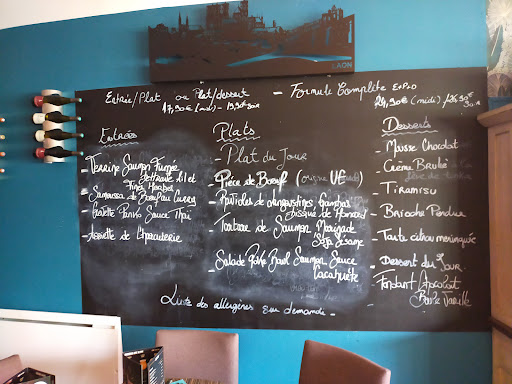 LAON
Entrée/Plat ou Plat/dessert - Formule Complète E+P+D
17,90€ (midi) - 19,90€ soir 24,90€ (midi) / 26,90€ soir
Entrées
- Terrine Saumon Fumée
Fines Herbes
- Samoussa de Boeuf au Curry
- Assiette Panko Sauce Thaï
- Assiette de l'Epicuderie
Plats
- Plat du Jour
- Pièce de Boeuf (origine UE)
- Ravioles de langoustines Gambas
Bisque de Homard
- Tartare de Saumon Marinade
Soja Sesame
- Salade Poke Bowl Saumon Sauce
Cacahuète
Desserts
- Mousse Chocolat
- Crème Brulée
- Tiramisu
- Brioche Perdue
- Tarte citron meringuée
- Dessert du Jour
- Fondant chocolat
Boule Vanille
Liste des allergènes sur demande -